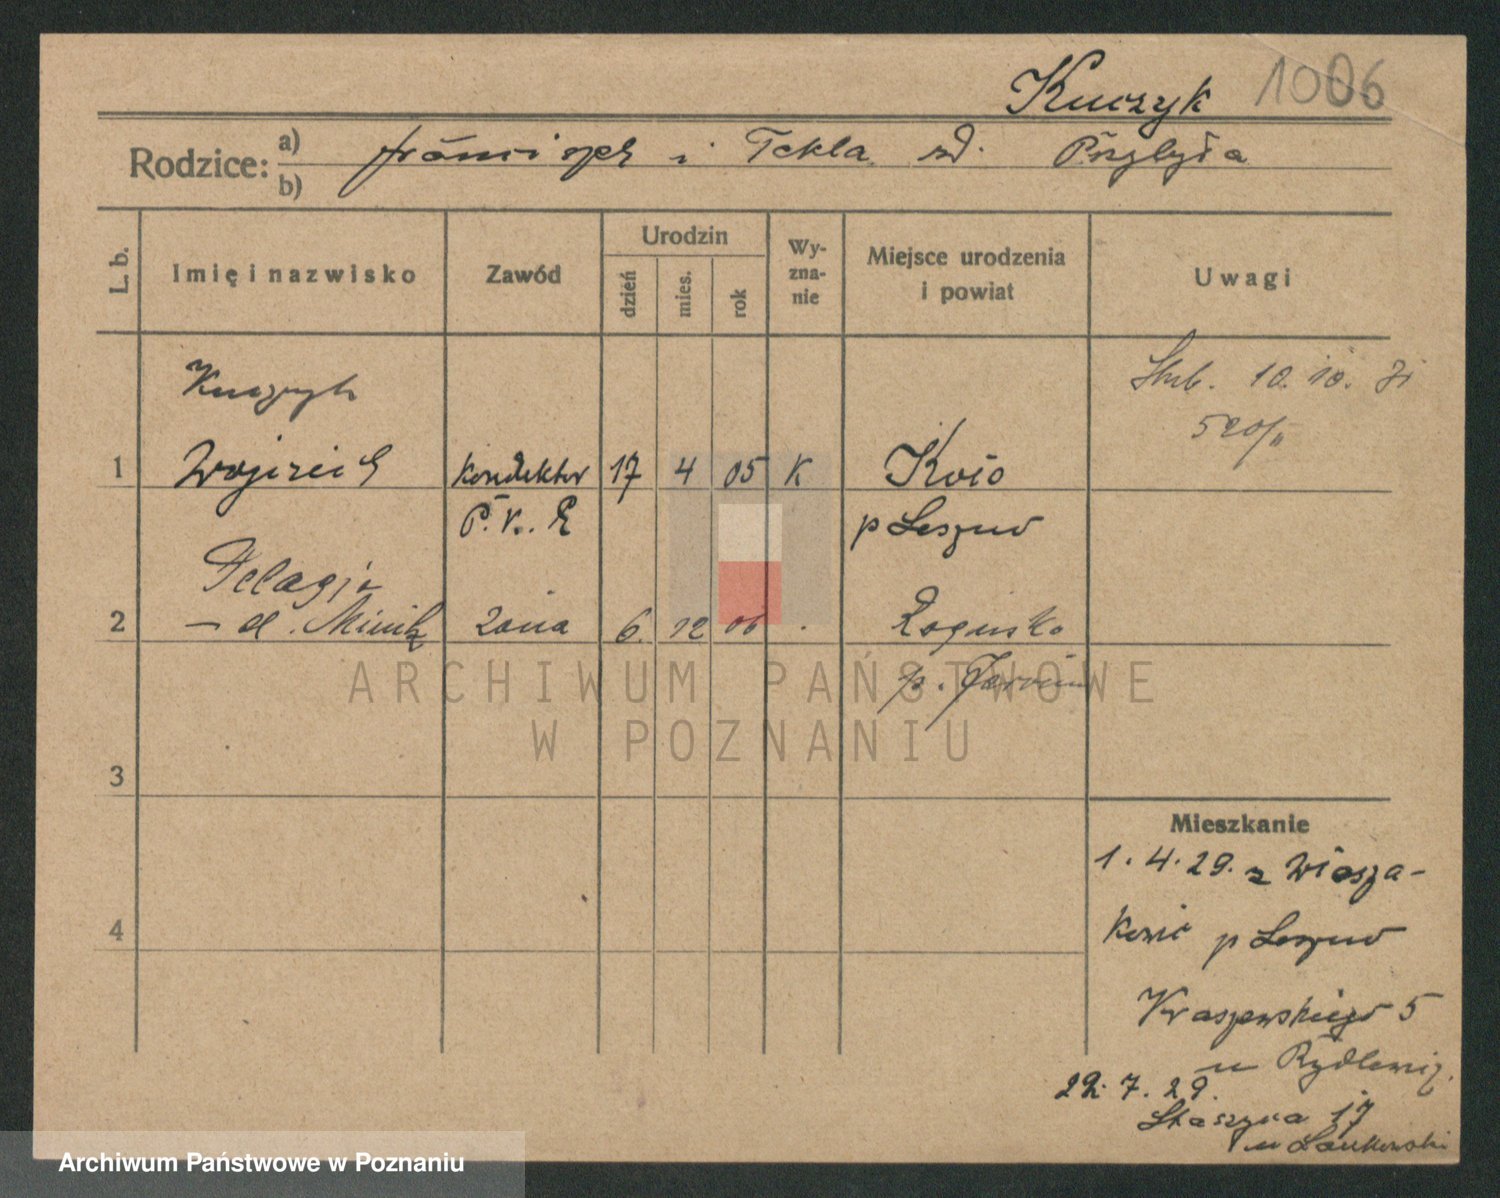 Kuczyk 1006
Rodzice: a) b) Franciszek i Tekla zd. Przybyła
L. b. Imię i nazwisko Zawód Urodzin dzień mies. rok Wyznanie Miejsce urodzenia i powiat Uwagi
Kuczyk
Ślub. 10. 10. 31
520/II
1 Wojciech Konduktor 17 4 05 K
P. K. E p Leszno
Pelagja
2 zona 6. 12 06
p. Jarocin
ARCHIWUM PAŃSTWOWE
W POZNANIU
3
Mieszkanie
1. 4. 29. z
4
p Leszno
Kraszewskiego 5
u
22. 7. 29.
Staszyca 17
u
Archiwum Państwowe w Poznaniu